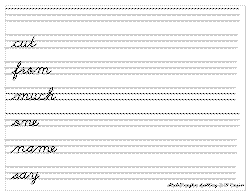 cut
from
much
one
name
say